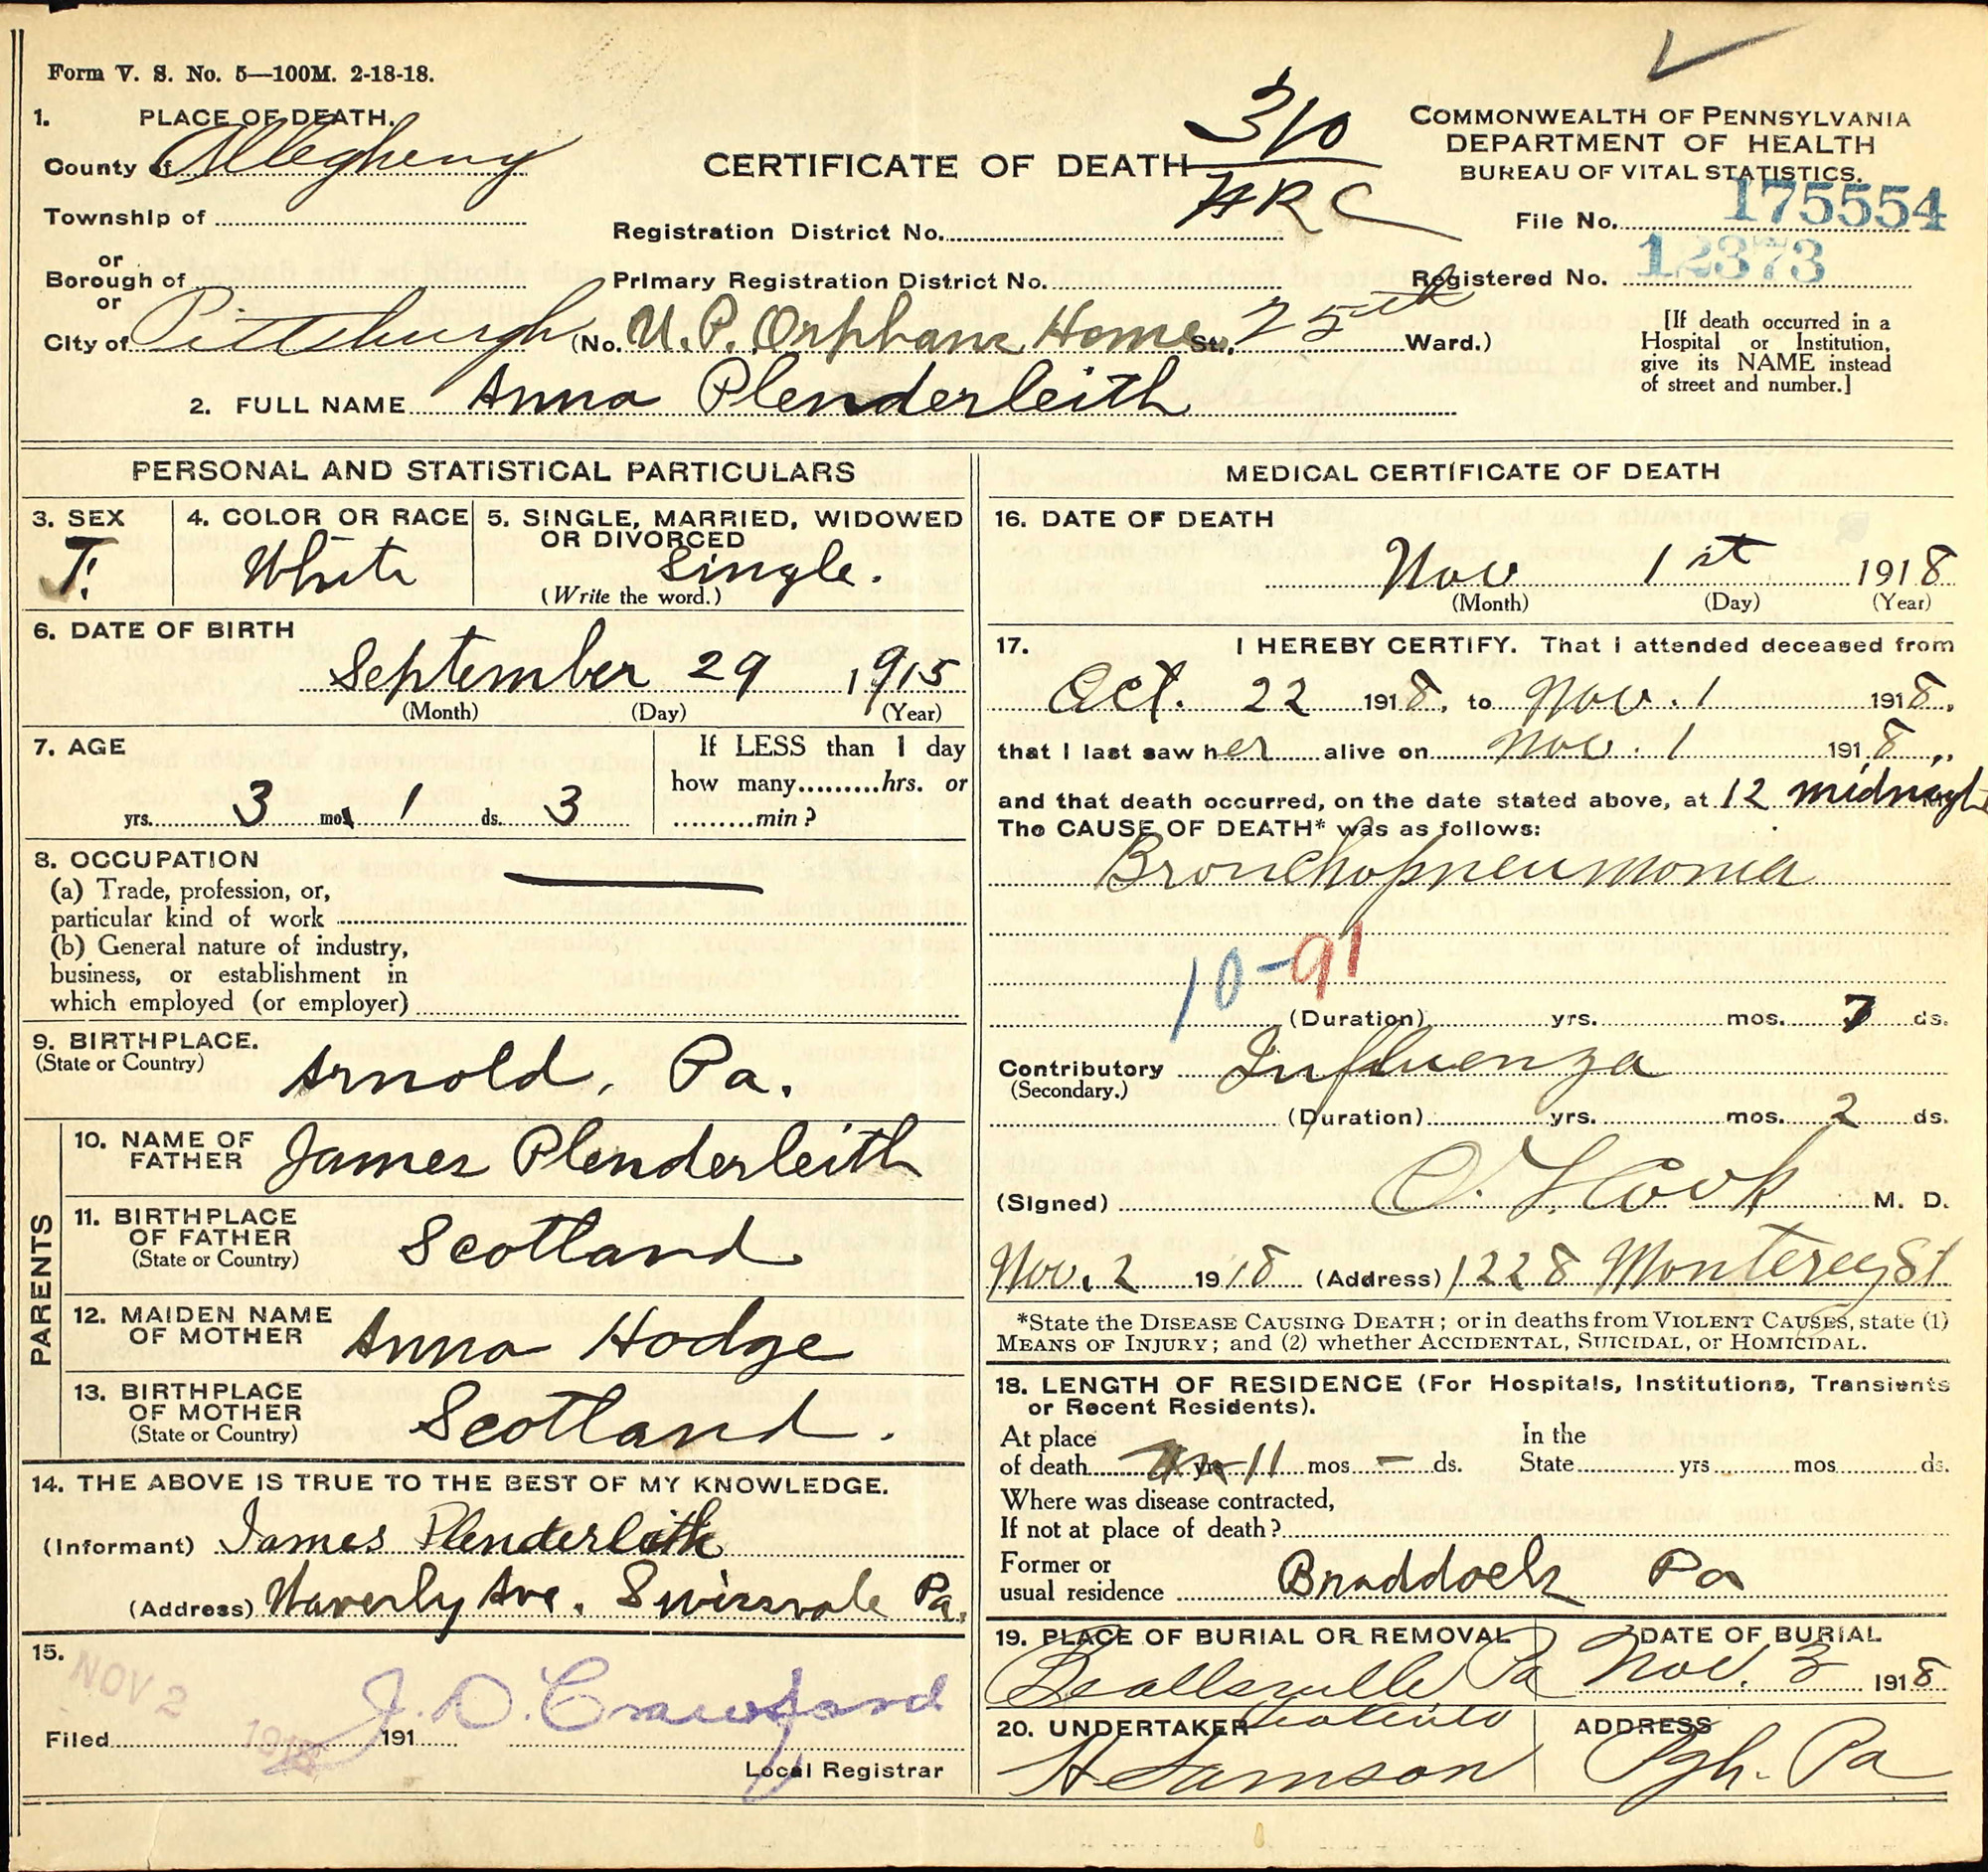 Form V. S. No. 5—100M. 2-18-18.
1. PLACE OF DEATH.
County of Allegheny
Township of
or
Borough of
or
City of Pittsburgh (No. U.P. Orphans Home St. 25th Ward.)
CERTIFICATE OF DEATH
310
ARC
Registration District No.
Primary Registration District No.
COMMONWEALTH OF PENNSYLVANIA
DEPARTMENT OF HEALTH
BUREAU OF VITAL STATISTICS.
File No. 175554
Registered No. 12373
[If death occurred in a
Hospital or Institution,
give its NAME instead
of street and number.]
2. FULL NAME Anna Plenderleith
PERSONAL AND STATISTICAL PARTICULARS
3. SEX
F.
4. COLOR OR RACE
White
5. SINGLE, MARRIED, WIDOWED
OR DIVORCED
Single.
(Write the word.)
6. DATE OF BIRTH
September 29 1915
(Month) (Day) (Year)
7. AGE
yrs. 3 mos. 1 ds. 3
If LESS than 1 day
how many.........hrs. or
.........min?
8. OCCUPATION
(a) Trade, profession, or,
particular kind of work
(b) General nature of industry,
business, or establishment in
which employed (or employer)
9. BIRTHPLACE.
(State or Country)
Arnold, Pa.
PARENTS
10. NAME OF
FATHER
James Plenderleith
11. BIRTHPLACE
OF FATHER
(State or Country)
Scotland
12. MAIDEN NAME
OF MOTHER
Anna Hodge
13. BIRTHPLACE
OF MOTHER
(State or Country)
Scotland.
14. THE ABOVE IS TRUE TO THE BEST OF MY KNOWLEDGE.
(Informant) James Plenderleith
(Address) Waverly Ave. Swissvale Pa.
15.
NOV 2 1918
Filed 191
J. D. Crawford
Local Registrar
MEDICAL CERTIFICATE OF DEATH
16. DATE OF DEATH
Nov 1st 1918
(Month) (Day) (Year)
17. I HEREBY CERTIFY. That I attended deceased from
Oct. 22 1918, to Nov. 1 1918,
that I last saw her alive on Nov. 1 1918,
and that death occurred, on the date stated above, at 12 midnight
The CAUSE OF DEATH* was as follows:
Bronchopneumonia
10-91
(Duration) yrs. mos. 7 ds.
Contributory Influenza
(Secondary.)
(Duration) yrs. mos. 2 ds.
(Signed) Cook M. D.
Nov. 2 1918 (Address) 1228 Monterey St
*State the DISEASE CAUSING DEATH; or in deaths from VIOLENT CAUSES, state (1)
MEANS OF INJURY; and (2) whether ACCIDENTAL, SUICIDAL, or HOMICIDAL.
18. LENGTH OF RESIDENCE (For Hospitals, Institutions, Transients
or Recent Residents).
At place
of death yrs 11 mos — ds.
In the
State yrs mos ds.
Where was disease contracted,
If not at place of death?
Former or
usual residence Braddock Pa
19. PLACE OF BURIAL OR REMOVAL
Beallsville Pa
DATE OF BURIAL
Nov. 3 1918
20. UNDERTAKER
H Samson
ADDRESS
Pgh. Pa